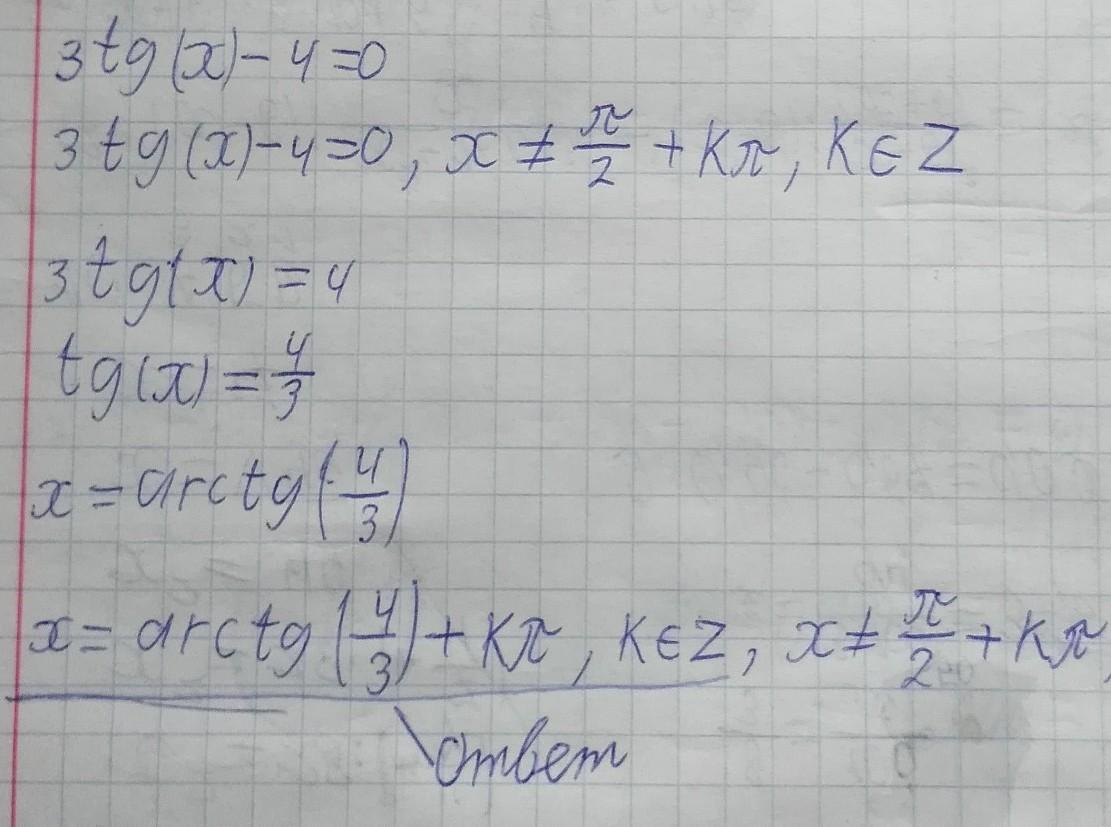 3tg(x)-4=0
3tg(x)-4=0, x ≠ π/2 + Kπ, K∈Z
3tg(x)=4
tg(x)=4/3
x=arctg(4/3)
x=arctg(4/3)+Kπ, K∈Z, x≠π/2+Kπ,
ответ